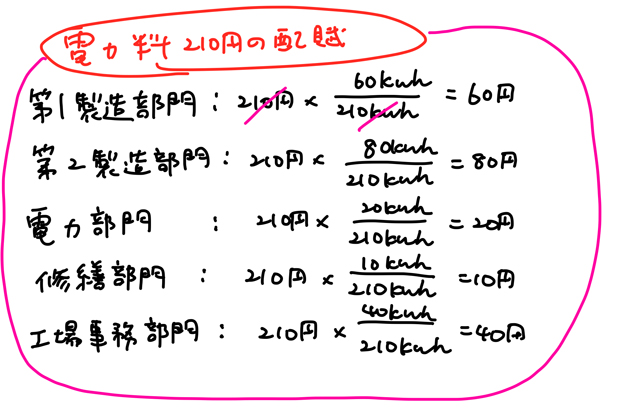 電力料 210円の配賦
第1製造部門 : 210円 × 60kwh/210kwh = 60円
第2製造部門 : 210円 × 80kwh/210kwh = 80円
電力部門 : 210円 × 20kwh/210kwh = 20円
修繕部門 : 210円 × 10kwh/210kwh = 10円
工場事務部門 : 210円 × 40kwh/210kwh = 40円